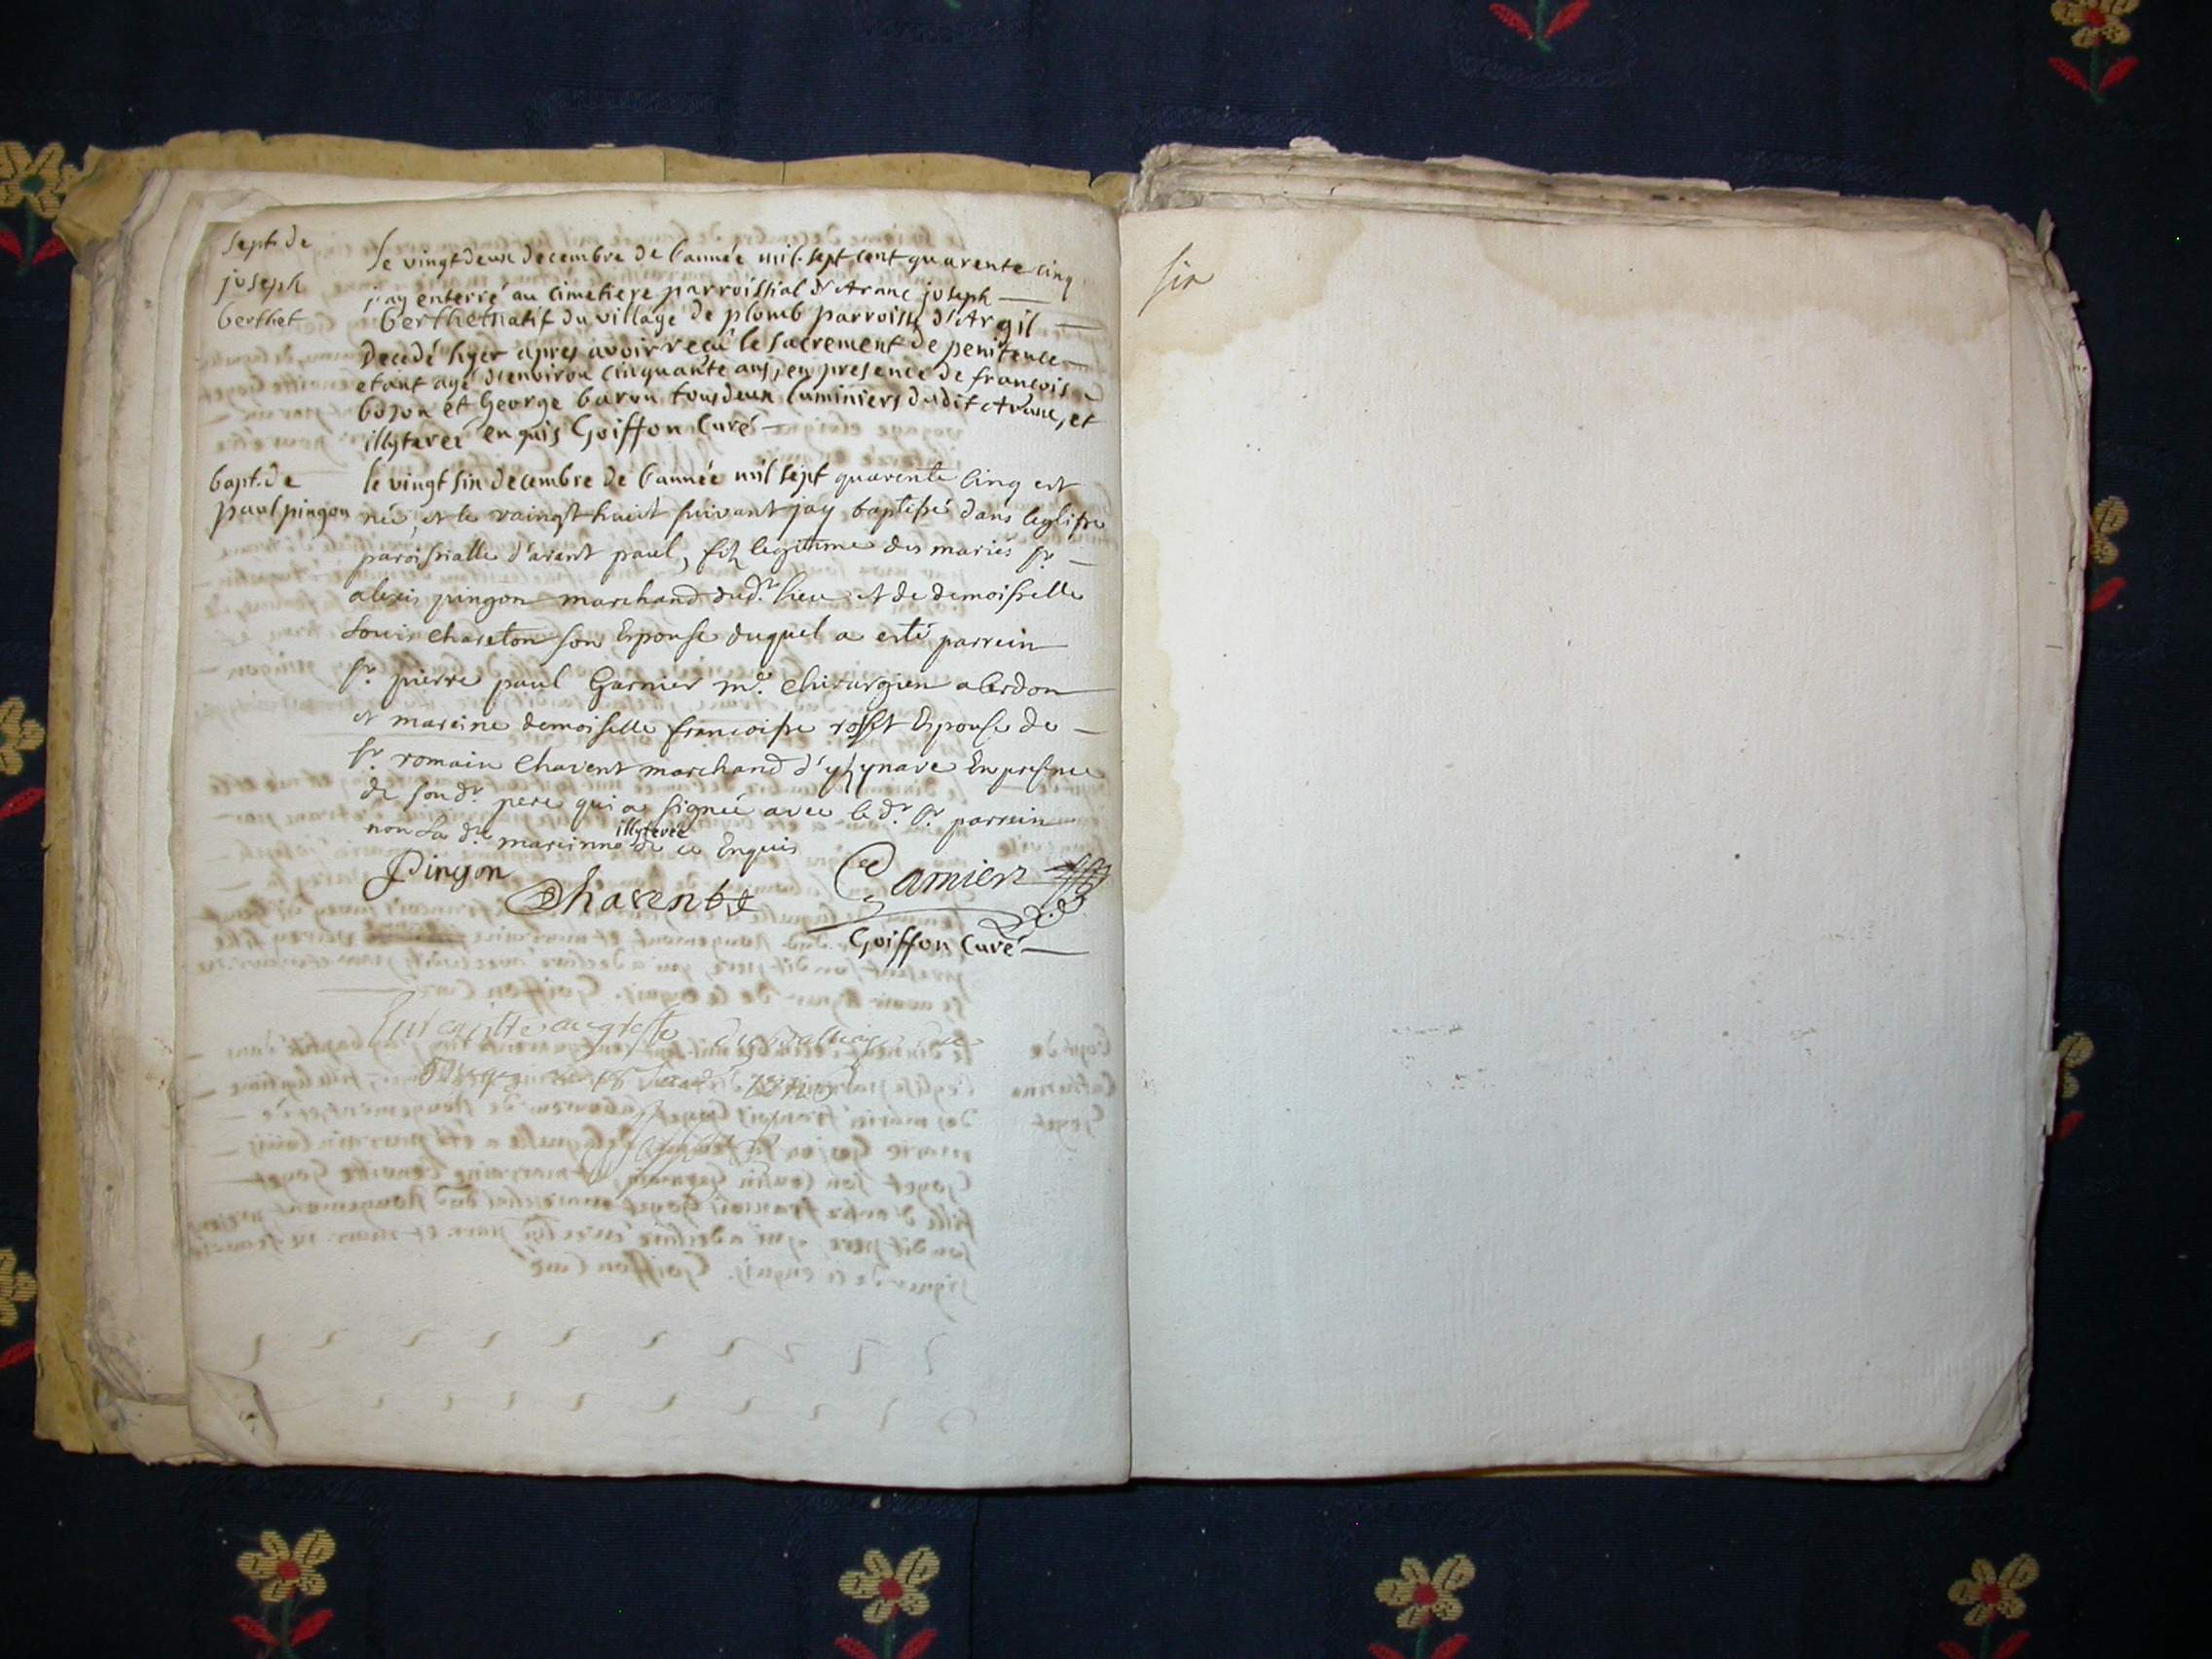 sept. de
joseph
berthet
Le vingt deux decembre de l'année mil sept cent quarente cinq
j'ay enterré au cimetiere parroissial d'Aranc joseph
berthet natif du village de plomb parroisse d'Argil
decedé hyer apres avoir reçu le sacrement de penitence
etant agé d'environ cinquante ans, en presence de françois
bozon et George baron tous deux luminiers dudit Aranc, et
illyterés enquis Goiffon Curé
bapt. de
paul pingon
le vingt six decembre de l'année mil sept quarente cinq est
né, et le vaingt huict suivant jay baptisé dans leglise
paroissialle d'arant paul, fils legitime des mariés sr.
alexis pingon marchand dud. lieu et de demoiselle
Louise Chareton son Epouse duquel a esté parrein
sr. pierre paul Garnier me. Chirurgien a Cerdon
et mareine demoiselle francoise rosset Epouse de
sr. romain Chavent marchand d' En presence
de son dt. pere qui a signée avec le dt. sr. parrein
non La de. mareinne illyterée de ce Enquis
Pingon
Chavent
Garnier
Goiffon Curé
six